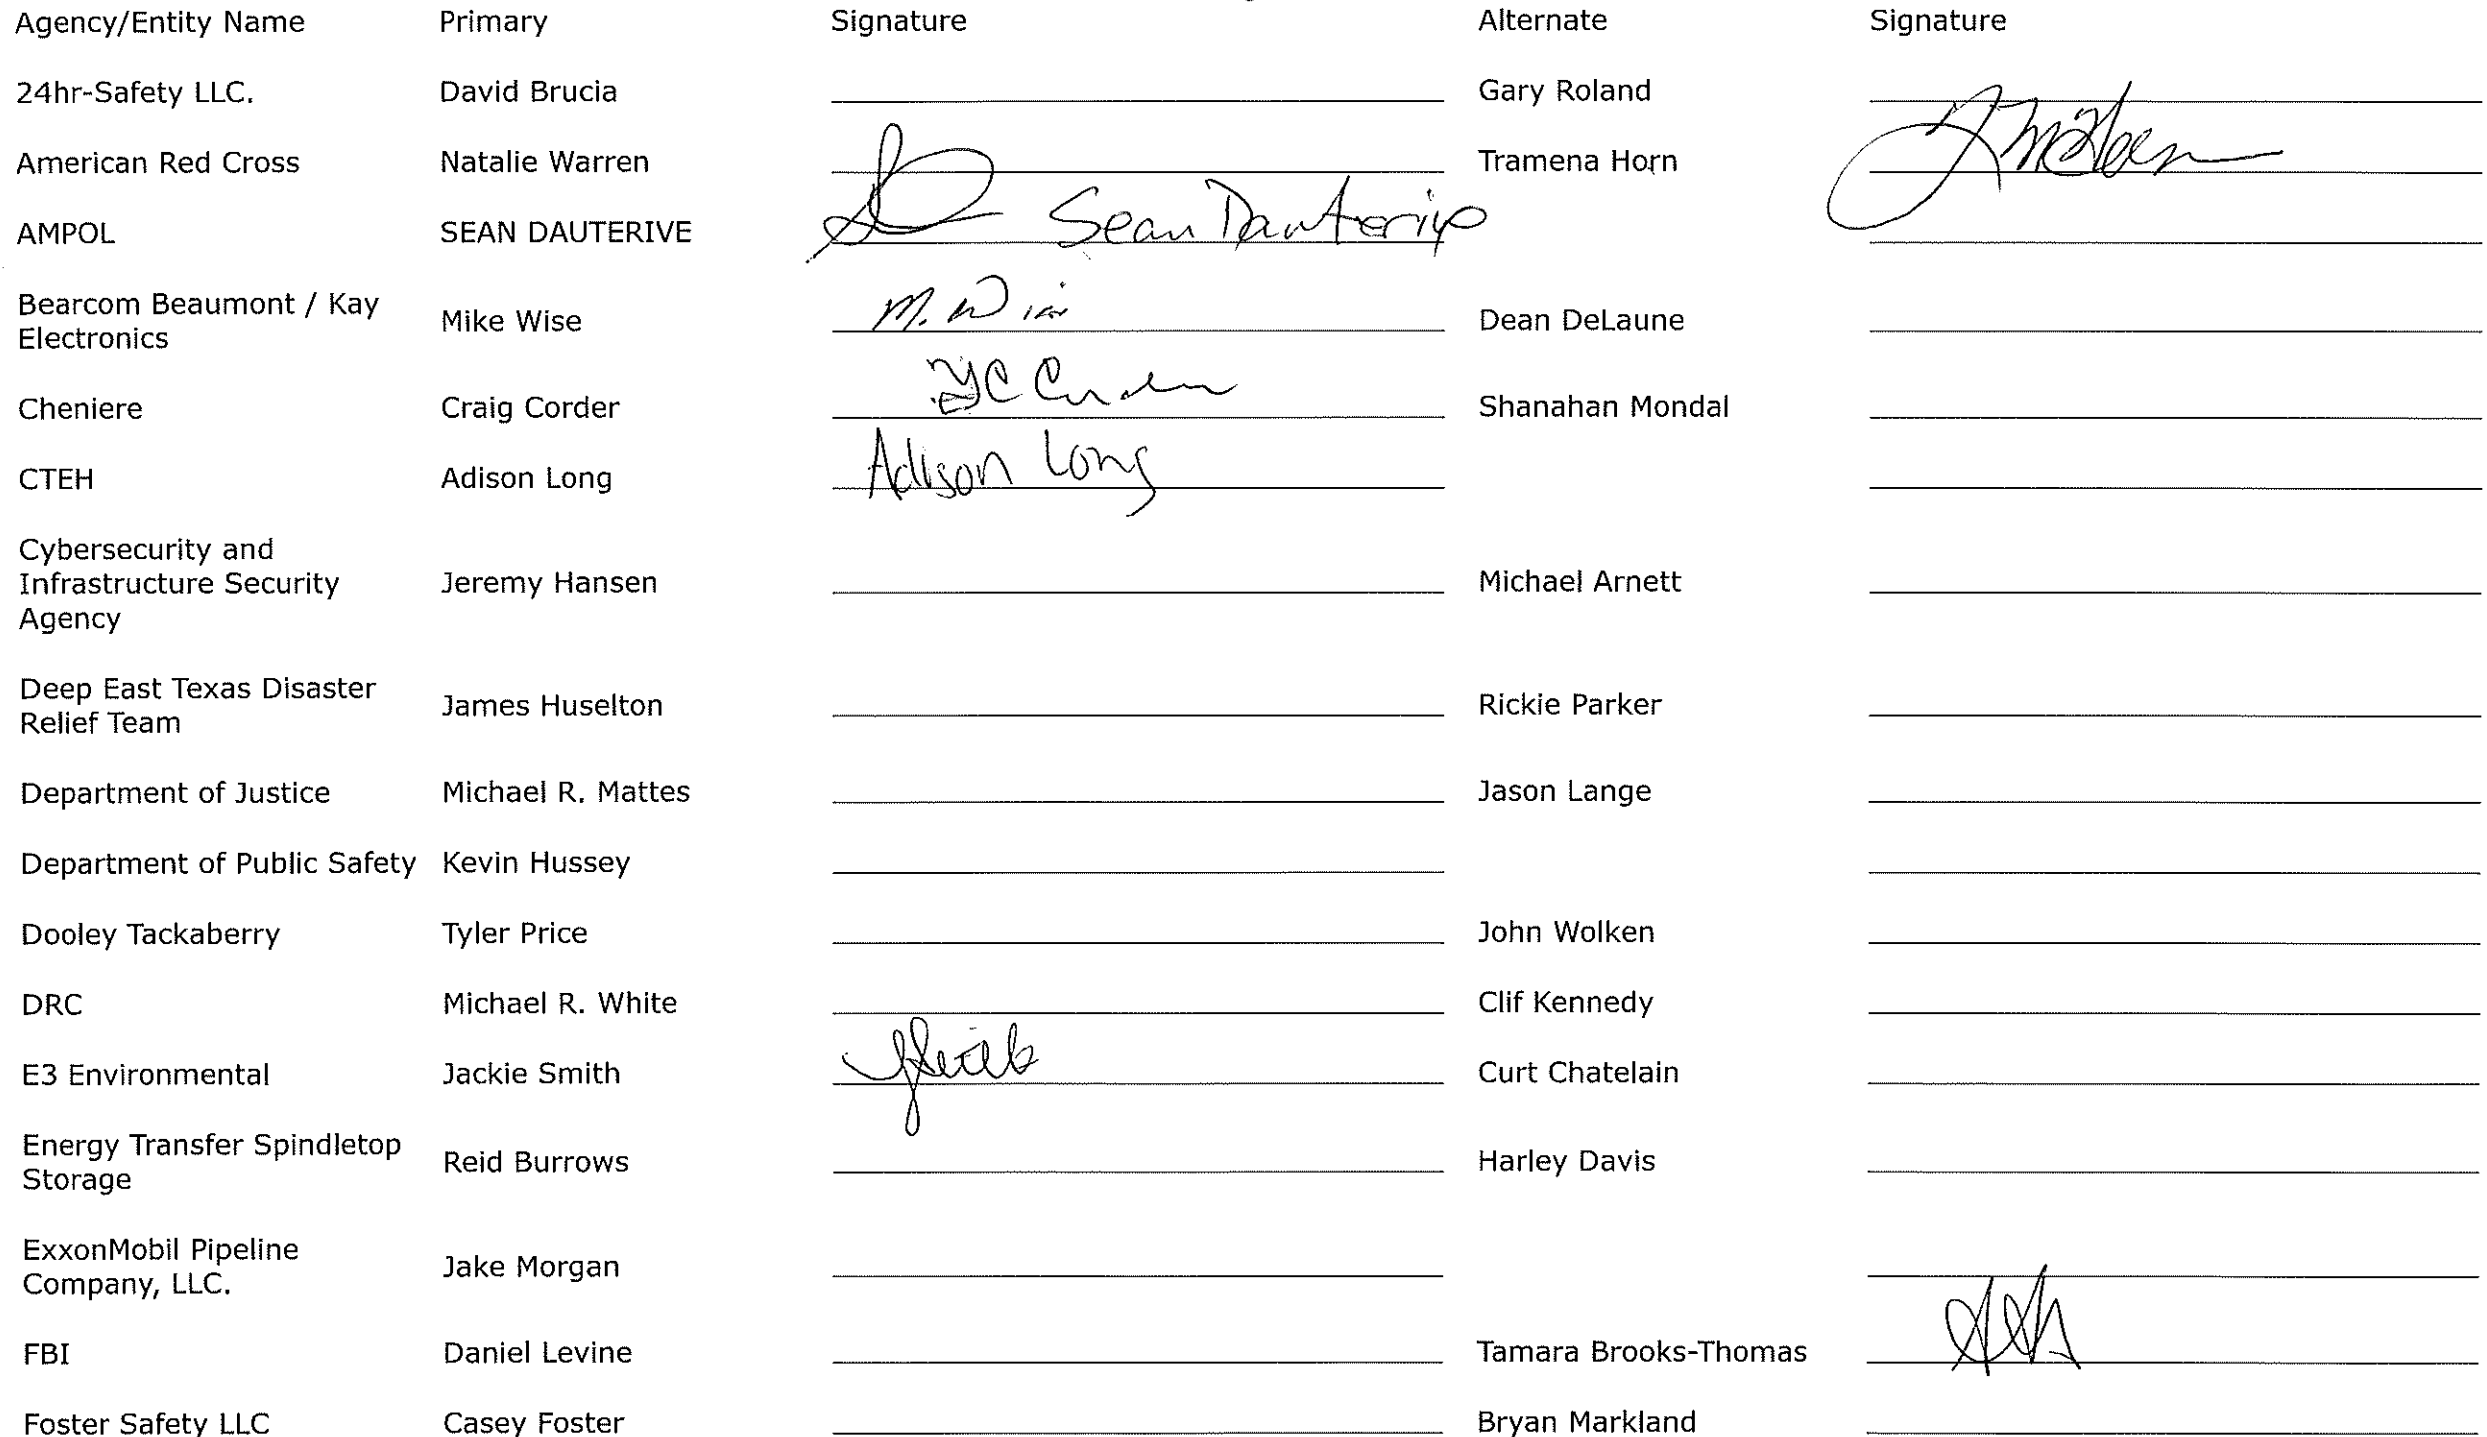 Agency/Entity Name Primary Signature Alternate Signature
24hr-Safety LLC. David Brucia Gary Roland
American Red Cross Natalie Warren Tramena Horn
AMPOL SEAN DAUTERIVE Sean Dauterive
Bearcom Beaumont / Kay
Electronics Mike Wise M. Dean DeLaune
Cheniere Craig Corder Shanahan Mondal
CTEH Adison Long Adison Long
Cybersecurity and
Infrastructure Security Jeremy Hansen Michael Arnett
Agency
Deep East Texas Disaster
Relief Team James Huselton Rickie Parker
Department of Justice Michael R. Mattes Jason Lange
Department of Public Safety Kevin Hussey
Dooley Tackaberry Tyler Price John Wolken
DRC Michael R. White Clif Kennedy
E3 Environmental Jackie Smith Curt Chatelain
Energy Transfer Spindletop
Storage Reid Burrows Harley Davis
ExxonMobil Pipeline
Company, LLC. Jake Morgan
FBI Daniel Levine Tamara Brooks-Thomas
Foster Safety LLC Casey Foster Bryan Markland